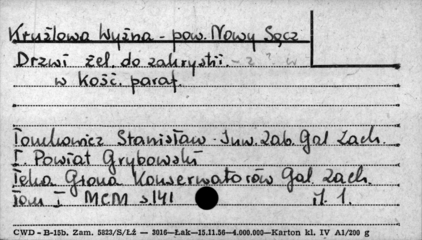 Krużlowa Wyżna - pow. Nowy Sącz
Drzwi żel. do zakrystii. - z ? w
w Kość. paraf.
Tomkowicz Stanisław. Inw. Zab. Gal Zach.
I. Powiat Grybowski
Teka Grona Konserwatorów Gal Zach.
Tom I MCM s. 141 il. 1.
CWD - B-15b. Zam. 5823/S/Łż — 3016—Łak—15.11.56—4.000.000—Karton kl. IV A1/200 g